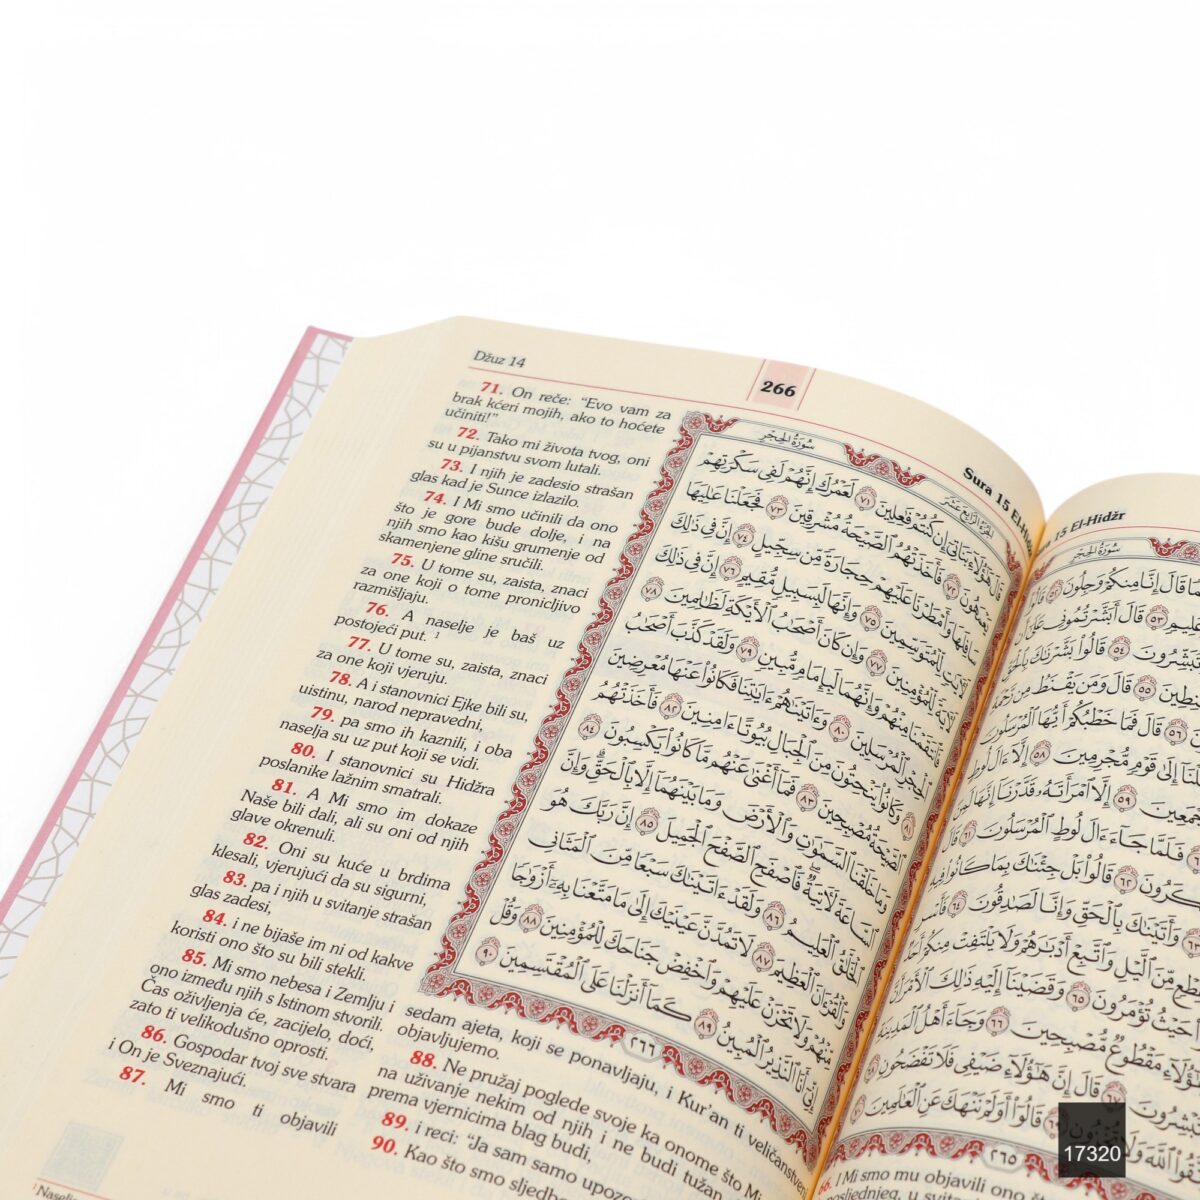 Džuz 14
266
Sura 15 El-Hi
71. On reče: “Evo vam za
brak kćeri mojih, ako to hoćete
učiniti!”
72. Tako mi života tvog, oni
su u pijanstvu svom lutali.
73. I njih je zadesio strašan
glas kad je Sunce izlazilo.
74. I Mi smo učinili da ono
što je gore bude dolje, i na
njih smo kao kišu grumenje od
skamenjene gline sručili.
75. U tome su, zaista, znaci
za one koji o tome pronicljivo
razmišljaju.
76. A naselje je baš uz
postojeći put. ¹
77. U tome su, zaista, znaci
za one koji vjeruju.
78. A i stanovnici Ejke bili su,
uistinu, narod nepravedni,
79. pa smo ih kaznili, i oba
naselja su uz put koji se vidi.
80. I stanovnici su Hidžra
poslanike lažnim smatrali.
81. A Mi smo im dokaze
Naše bili dali, ali su oni od njih
glave okrenuli.
82. Oni su kuće u brdima
klesali, vjerujući da su sigurni,
83. pa i njih u svitanje strašan
glas zadesi,
84. i ne bijaše im ni od kakve
koristi ono što su bili stekli.
85. Mi smo nebesa i Zemlju i
ono između njih s Istinom stvorili.
Čas oživljenja će, zacijelo, doći,
zato ti velikodušno oprosti.
86. Gospodar tvoj sve stvara
i On je Sveznajući.
87. Mi smo ti objavili
sedam ajeta, koji se ponavljaju, i Kur’an ti veličanstven
objavljujemo.
88. Ne pružaj poglede svoje ka onome što Mi
na uživanje nekim od njih i ne budi tužan
prema vjernicima blag budi,
89. i reci: “Ja sam samo upozo
90. Kao što smo sljedbe
سُورَةُ الحِجْرِ
الجُزْءُ الرَّابِعَ عَشَرَ
قَالَ هَٰٓؤُلَآءِ بَنَاتِىٓ إِن كُنتُمْ فَٰعِلِينَ ٧١ لَعَمْرُكَ إِنَّهُمْ لَفِى سَكْرَتِهِمْ
يَعْمَهُونَ ٧٢ فَأَخَذَتْهُمُ ٱلصَّيْحَةُ مُشْرِقِينَ ٧٣ فَجَعَلْنَا عَٰلِيَهَا
سَافِلَهَا وَأَمْطَرْنَا عَلَيْهِمْ حِجَارَةً مِّن سِجِّيلٍ ٧٤ إِنَّ فِى ذَٰلِكَ
لَءَايَٰتٍ لِّلْمُتَوَسِّمِينَ ٧٥ وَإِنَّهَا لَبِسَبِيلٍ مُّقِيمٍ ٧٦ إِنَّ فِى ذَٰلِكَ
لَءَايَةً لِّلْمُؤْمِنِينَ ٧٧ وَإِن كَانَ أَصْحَٰبُ ٱلْأَيْكَةِ لَظَٰلِمِينَ ٧٨
فَٱنتَقَمْنَا مِنْهُمْ وَإِنَّهُمَا لَبِإِمَامٍ مُّبِينٍ ٧٩ وَلَقَدْ كَذَّبَ أَصْحَٰبُ
ٱلْحِجْرِ ٱلْمُرْسَلِينَ ٨٠ وَءَاتَيْنَٰهُمْ ءَايَٰتِنَا فَكَانُوا۟ عَنْهَا مُعْرِضِينَ
٨١ وَكَانُوا۟ يَنْحِتُونَ مِنَ ٱلْجِبَالِ بُيُوتًا ءَامِنِينَ ٨٢ فَأَخَذَتْهُمُ
ٱلصَّيْحَةُ مُصْبِحِينَ ٨٣ فَمَآ أَغْنَىٰ عَنْهُم مَّا كَانُوا۟ يَكْسِبُونَ ٨٤
وَمَا خَلَقْنَا ٱلسَّمَٰوَٰتِ وَٱلْأَرْضَ وَمَا بَيْنَهُمَآ إِلَّا بِٱلْحَقِّ وَإِنَّ
ٱلسَّاعَةَ لَءَاتِيَةٌ فَٱصْفَحِ ٱلصَّفْحَ ٱلْجَمِيلَ ٨٥ إِنَّ رَبَّكَ هُوَ
ٱلْخَلَّٰقُ ٱلْعَلِيمُ ٨٦ وَلَقَدْ ءَاتَيْنَٰكَ سَبْعًا مِّنَ ٱلْمَثَانِى
وَٱلْقُرْءَانَ ٱلْعَظِيمَ ٨٧ لَا تَمُدَّنَّ عَيْنَيْكَ إِلَىٰ مَا مَتَّعْنَا بِهِۦٓ أَزْوَٰجًا
مِّنْهُمْ وَلَا تَحْزَنْ عَلَيْهِمْ وَٱخْفِضْ جَنَاحَكَ لِلْمُؤْمِنِينَ ٨٨ وَقُلْ
إِنِّىٓ أَنَا ٱلنَّذِيرُ ٱلْمُبِينُ ٨٩ كَمَآ أَنزَلْنَا عَلَى ٱلْمُقْتَسِمِينَ ٩٠
٢٦٦
15 El-Hidžr
سُورَةُ الحِجْرِ
قَالَ إِنَّا مِنكُمْ وَجِلُونَ
٥٣ قَالَ أَبَشَّرْتُمُونِى عَلَىٰٓ
تُبَشِّرُونَ ٥٤ قَالُوا۟ بَشَّرْنَٰكَ بِٱلْحَقِّ
٥٥ قَالَ وَمَن يَقْنَطُ مِن رَّحْمَةِ
٥٦ قَالَ فَمَا خَطْبُكُمْ أَيُّهَا ٱلْمُرْسَلُونَ
إِلَىٰ قَوْمٍ مُّجْرِمِينَ ٥٨ إِلَّآ ءَالَ لُوطٍ
٥٩ إِلَّا ٱمْرَأَتَهُۥ قَدَّرْنَآ إِنَّهَا لَمِنَ
فَلَمَّا جَآءَ ءَالَ لُوطٍ ٱلْمُرْسَلُونَ
قَالُوا۟ بَلْ جِئْنَٰكَ بِمَا كَانُوا۟ فِيهِ
وَأَتَيْنَٰكَ بِٱلْحَقِّ وَإِنَّا لَصَٰدِقُونَ ٦٤ فَأَسْرِ
مِّنَ ٱلَّيْلِ وَٱتَّبِعْ أَدْبَٰرَهُمْ وَلَا يَلْتَفِتْ مِنكُمْ أَحَدٌ
حَيْثُ تُؤْمَرُونَ ٦٥ وَقَضَيْنَآ إِلَيْهِ ذَٰلِكَ ٱلْأَمْرَ
مَقْطُوعٌ مُّصْبِحِينَ ٦٦ وَجَآءَ أَهْلُ ٱلْمَدِينَةِ
قَالَ إِنَّ هَٰٓؤُلَآءِ ضَيْفِى فَلَا تَفْضَحُونِ
قَالُوٓا۟ أَوَلَمْ نَنْهَكَ عَنِ ٱلْعَٰلَمِينَ
٢٦٥
66. I Mi smo mu objavili ono što
17320